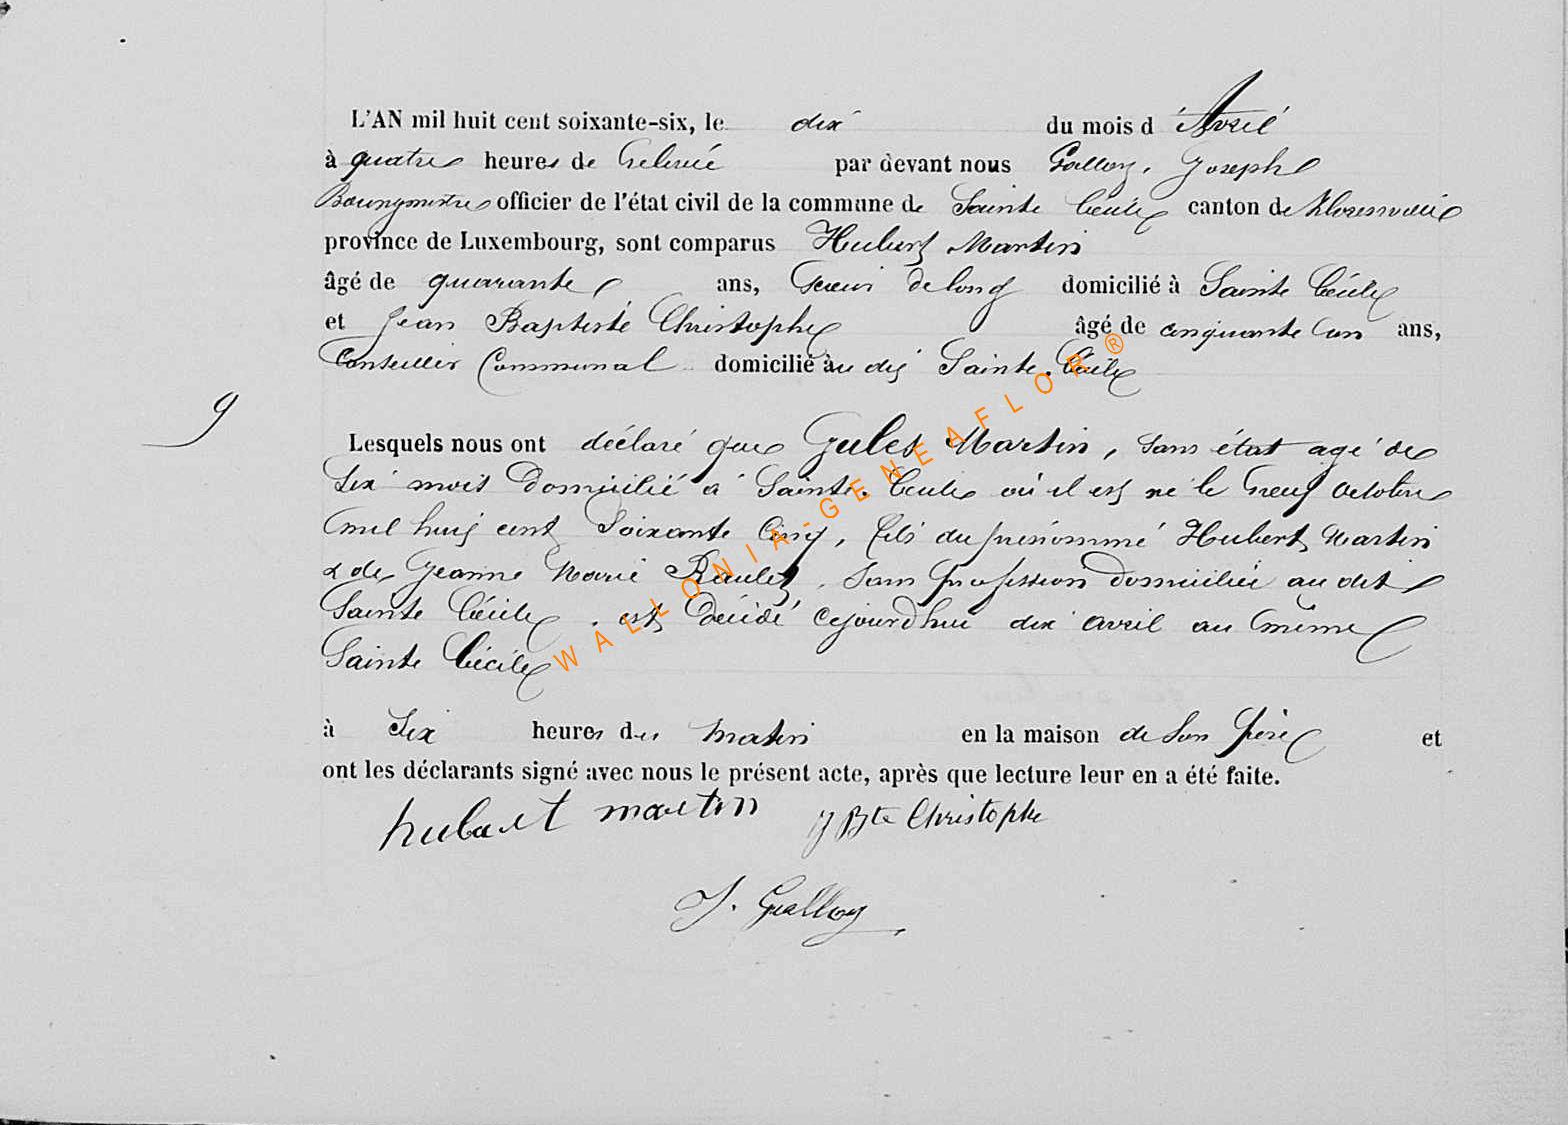 L'AN mil huit cent soixante-six, le dix du mois d'Avril
à quatre heures de relevée par devant nous Galloy, Joseph
Bourgmestre officier de l'état civil de la commune de Sainte Cécile canton de Florenville
province de Luxembourg, sont comparus Hubert Martin
âgé de quarante ans, Scieur de long domicilié à Sainte Cécile
et Jean Baptiste Christophe âgé de cinquante un ans,
Conseiller Communal domicilié au dit Sainte-Cécile
9
Lesquels nous ont déclaré que Jules Martin, sans état agé de
Six mois Domicilié à Sainte-Cécile où il est né le neuf octobre
mil huit cent Soixante Cinq, fils du prénommé Hubert Martin
& de Jeanne Marie Raulet, Sans profession domiciliée au dit
Sainte Cécile, est Décédé cejourd'hui dix avril au même
Sainte Cécile
à Six heures du matin en la maison de Son père et
ont les déclarants signé avec nous le présent acte, après que lecture leur en a été faite.
hubert martin J Bte Christophe
J. Galloy
WALLONIA-GENEAFLOR®